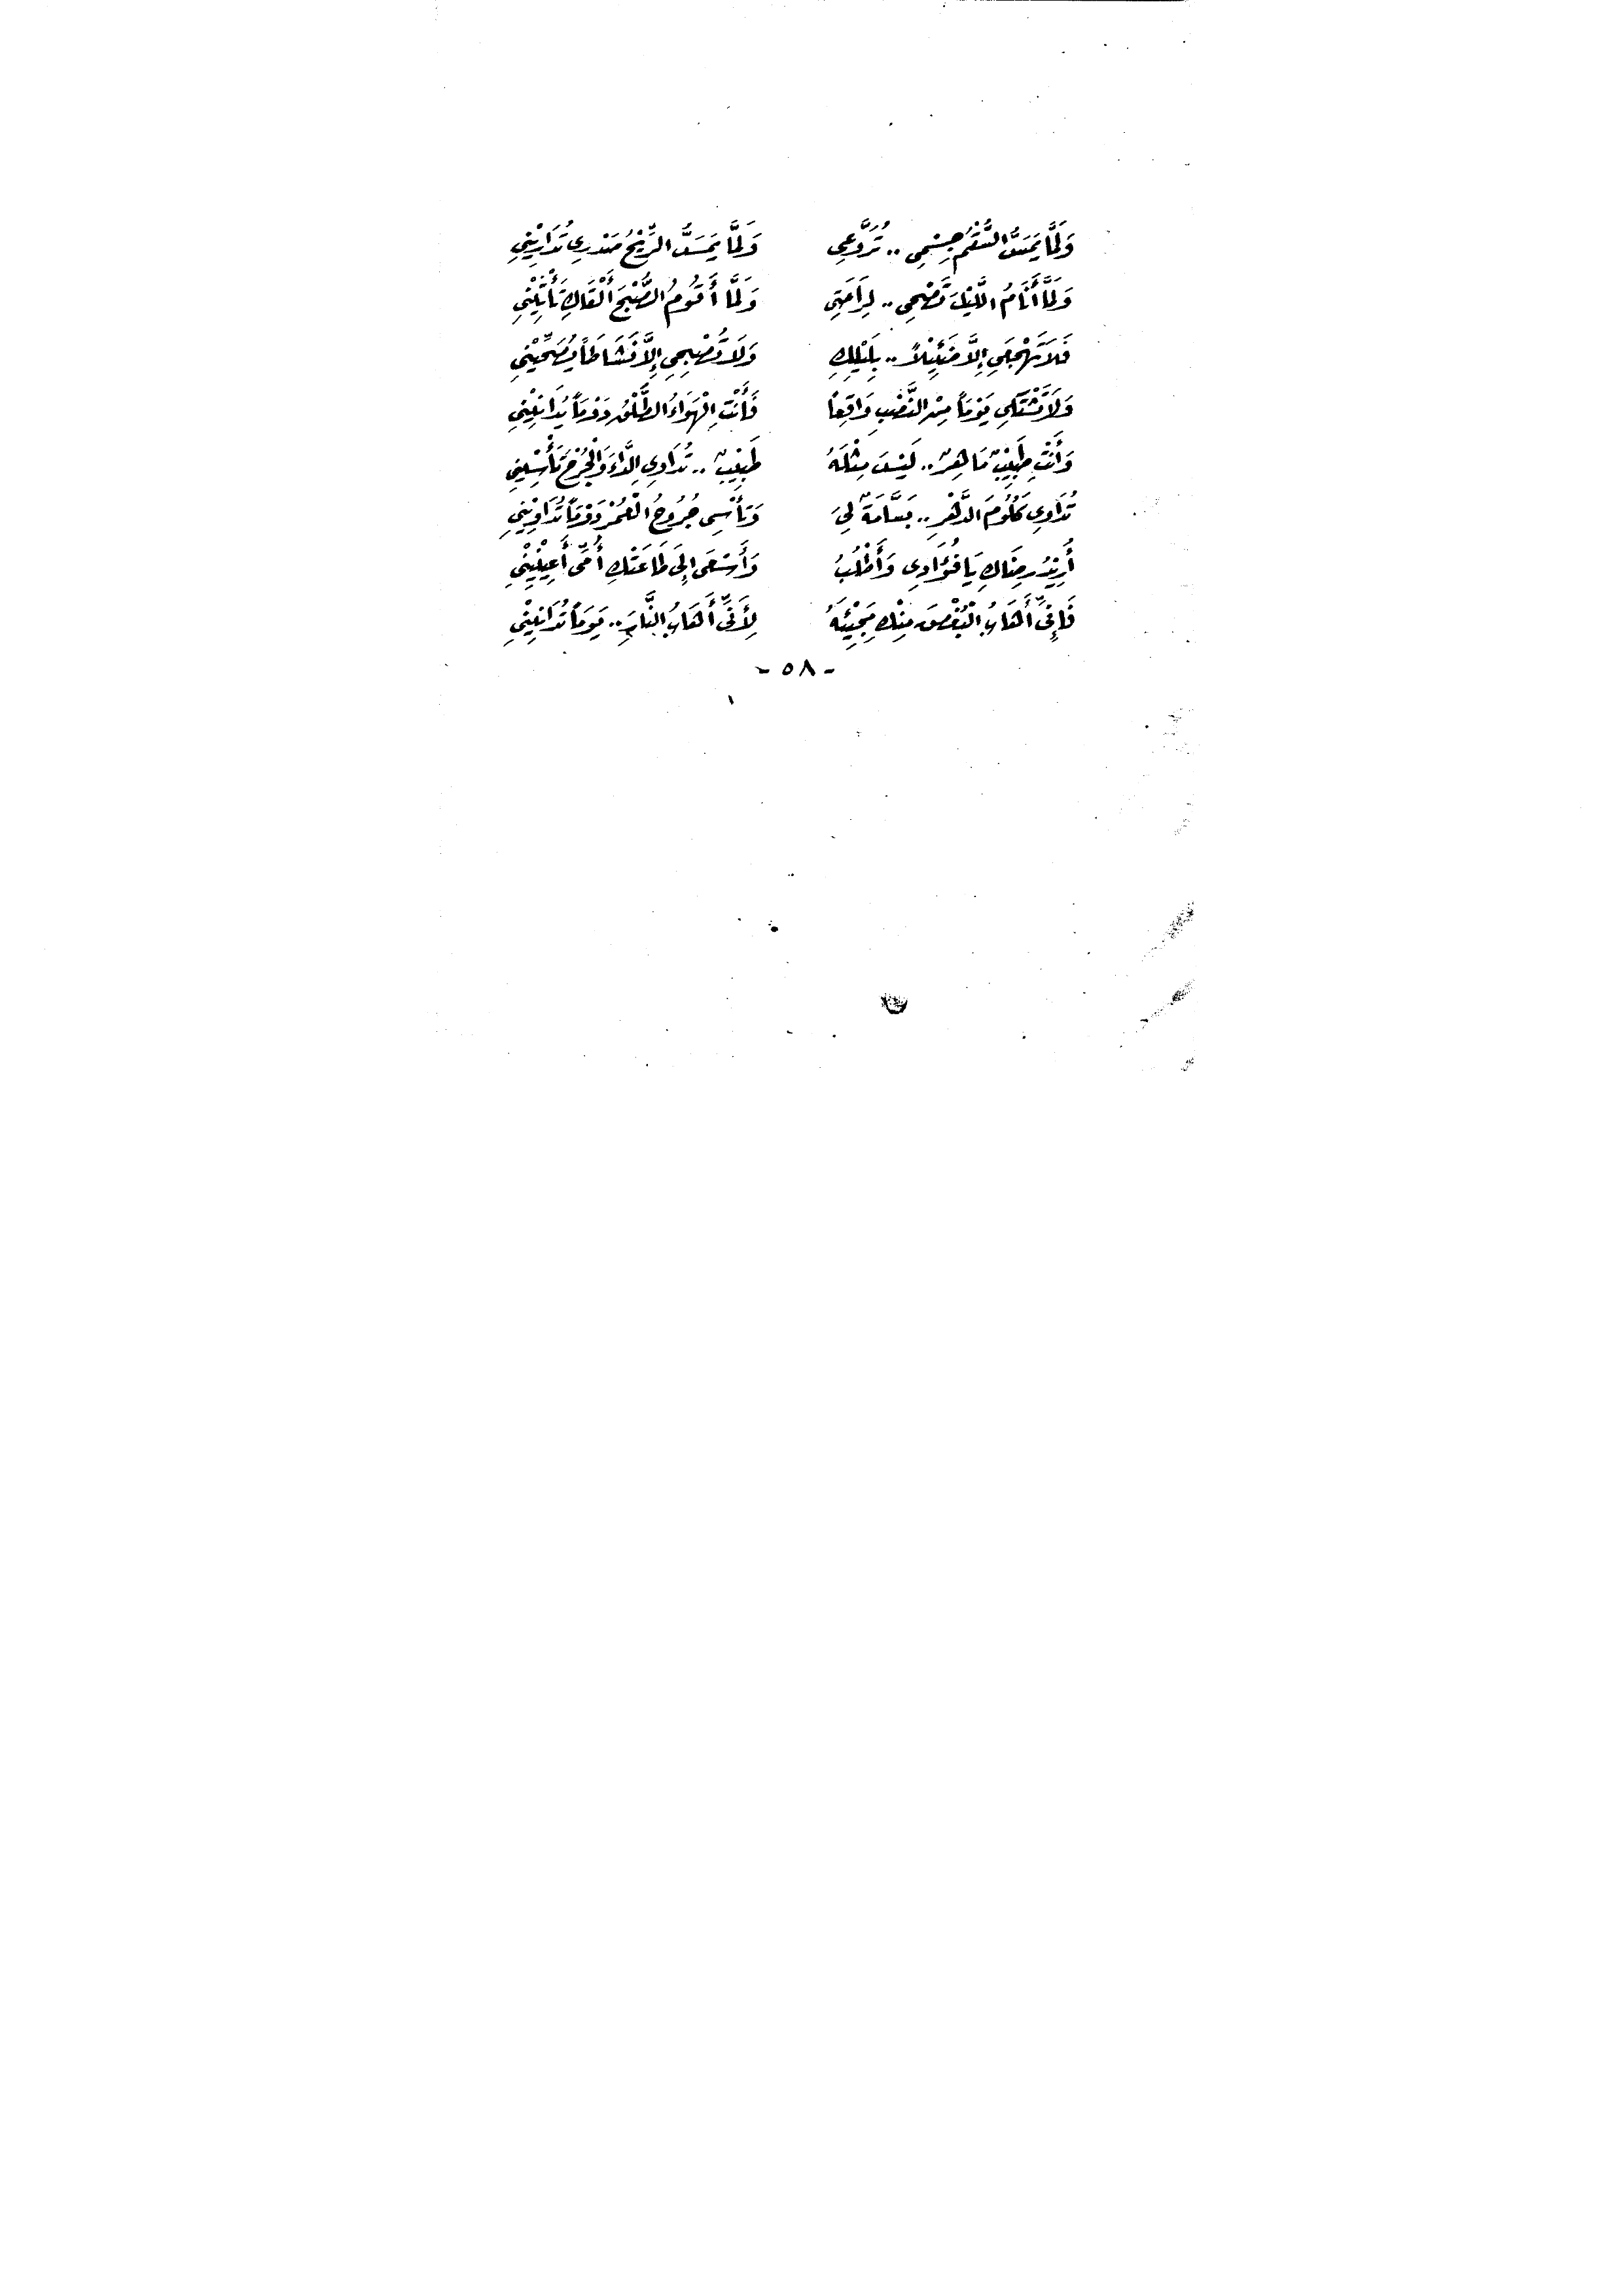 وَلَمَّا يَمَسَّ السُّقْمُ جِسْمِي .. تُرَوَّعِي وَلَمَّا يَمَسَّ الرِّيْحُ صَدْرِي تُدَارِيْنِي
وَلَمَّا أَنَامُ اللَّيْلَ تَصْحِي .. لِرَاحَتِي وَلَمَّا أَقُومُ الصُّبْحَ أَلْقَاكِ تَأْتِيْنِي
فَلَا تَهْجَعِي إِلَّا ضَئِيْلاً .. بِلَيْلِكِ وَلَا تُصْبِحِي إِلَّا نَشَاطاً يُصَحِّيْنِي
وَلَا تَشْتَكِي يَوْمَاً مِنَ النَّصْبِ وَاقِعاً فَأَنْتِ الْهَوَاءُ الطَّلْقُ دَوْمَاً يُدَانِيْنِي
وَأَنْتِ طَبِيْبٌ مَاهِرٌ .. لَيْسَ مِثْلَهُ طَبِيْبٌ .. تُدَاوِي الدَّاءَ وَالْجُرْحَ تَأْسِيْنِي
تُدَاوِي كُلُومَ الدَّهْرِ .. بَسَّامَةٌ لِيَ وَتَأْسِي جُرُوحُ الْعُمْرِ دَوْمَاً تُدَاوِيْنِي
أُرِيْدُ رِضَاكِ يَا فُؤَادِي وَأَطْلُبُ وَأَسْعَى إِلَى طَاعَتْكِ أُمِّي أَعِيْنِيْنِي
فَإِنِّي أَهَابُ الْبُغْضَ مِنْكِ مَجِيْئَهُ لِأَنِّي أَهَابُ النَّارَ .. يَوْمَاً تُدَانِيْنِي
- ٥٨ -